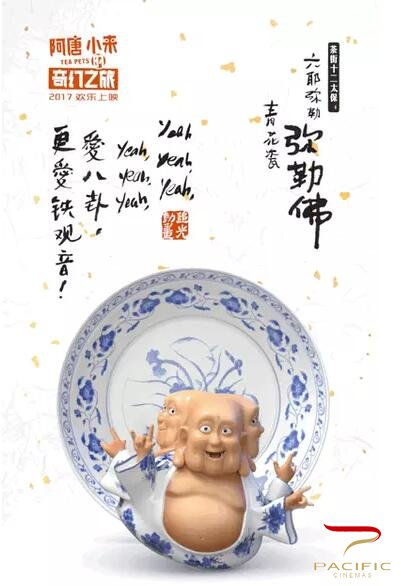 阿唐小来
TEA PETS
的
奇幻之旅
2017 欢乐上映
茶街十二太保
六耶弥勒
弥勒佛
青花瓷
Yeah
yeah,
Yeah,
yeah,
yeah,
Yeah,
愛八卦！
更愛铁观音！
追光
動畫
PACIFIC
CINEMAS